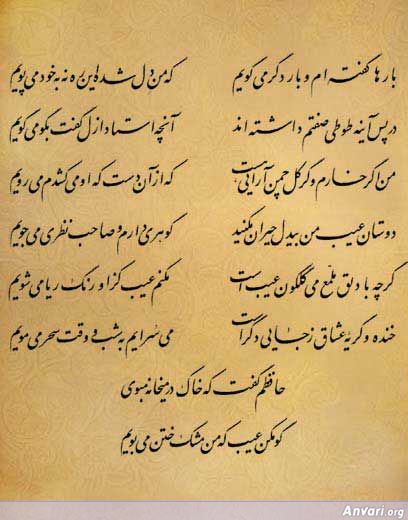 بارها گفته ام و بار دگر می گویم که من دل شده این ره نه به خود می پویم
در پس آینه طوطی صفتم داشته اند آنچه استاد ازل گفت بگو می گویم
من اگر خارم و گر گل چمن آرایی هست که از آن دست که او می کشدم می رویم
دوستان عیب من بیدل حیران مکنید گوهری دارم و صاحب نظری می جویم
گرچه با دلق ملمع می گلگون عیب است مکنم عیب کزاو رنگ ریا می شویم
خنده و گریه عشاق ز جایی دگر است می سرایم به شب و وقت سحر می مویم
حافظم گفت که خاک در میخانه مبوی
گو مکن عیب که من مشک ختن می بویم
Anvari.org